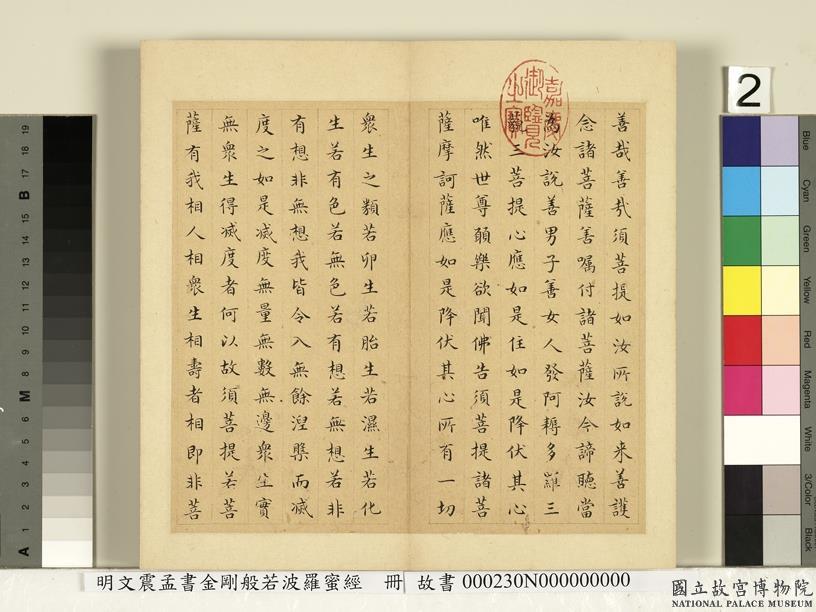 善哉善哉須菩提如汝所說如来善護
念諸菩薩善囑付諸菩薩汝今諦聽當
為汝說善男子善女人發阿耨多羅三
藐三菩提心應如是住如是降伏其心
唯然世尊願樂欲聞佛告須菩提諸菩
薩摩訶薩應如是降伏其心所有一切
衆生之類若卵生若胎生若濕生若化
生若有色若無色若有想若無想若非
有想非無想我皆令入無餘涅槃而滅
度之如是滅度無量無數無邊衆生實
無衆生得滅度者何以故須菩提若菩
薩有我相人相衆生相壽者相即非菩
嘉慶御覽之寶
2
19
18
17
16
15
14
13
12
11
10
9
8
7
6
5
4
3
2
1
B
M
A
Blue
Cyan
Green
Yellow
Red
Magenta
White
3/Color
Black
明文震孟書金剛般若波羅蜜經 冊 故書 000230N000000000
國立故宮博物院
NATIONAL PALACE MUSEUM